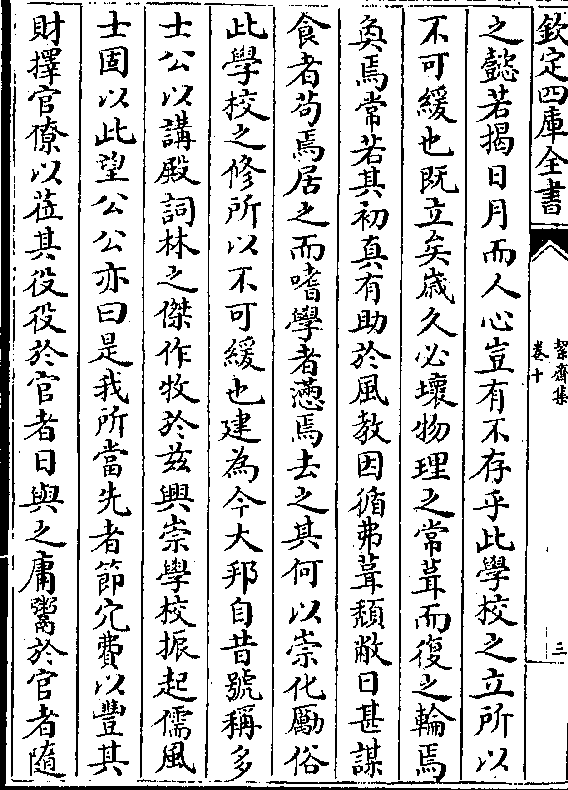 欽定四庫全書
絜齋集
卷十
三
之懿若揭日月而人心豈有不存乎此學校之立所以
不可緩也既立矣歳久必壞物理之常葺而復之輪焉
奐焉常若其初真有助於風教因循弗葺頽敝日甚謀
食者茍焉居之而嗜學者懣焉去之其何以崇化厲俗
此學校之修所以不可緩也建為今大邦自昔號稱多
士公以講殿詞林之傑作牧於兹興崇學校振起儒風
士固以此望公公亦曰是我所當先者節冗費以豐其
財擇官僚以莅其役役於官者日與之庸鬻於官者隨